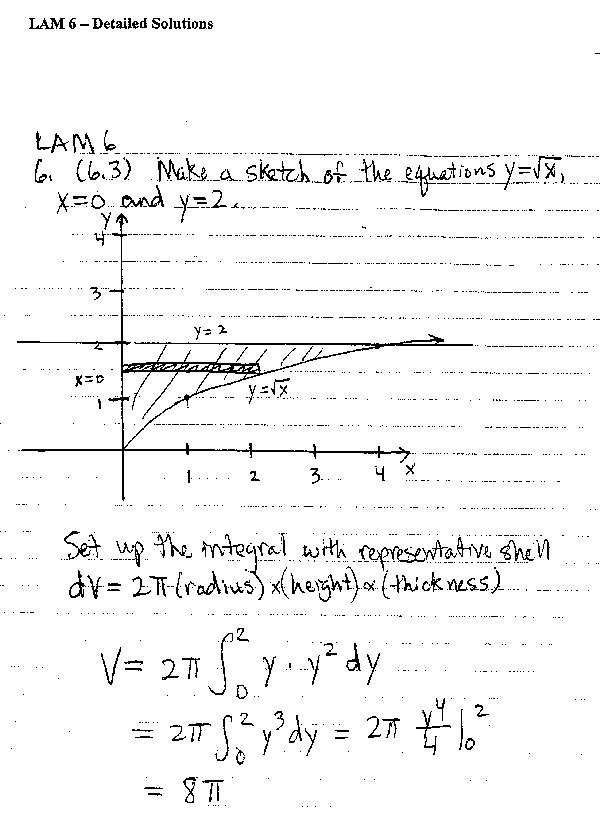 LAM 6 – Detailed Solutions
LAM 6
6. (6.3) Make a sketch of the equations y=√x,
x=0 and y=2.
y
4
3
y=2
2
x=0
y=√x
1
1 2 3 4 x
Set up the integral with representative shell
dV = 2π(radius)×(height)×(thickness)
V= 2π ∫₀² y · y² dy
= 2π ∫₀² y³ dy = 2π y⁴/4 |₀²
= 8π